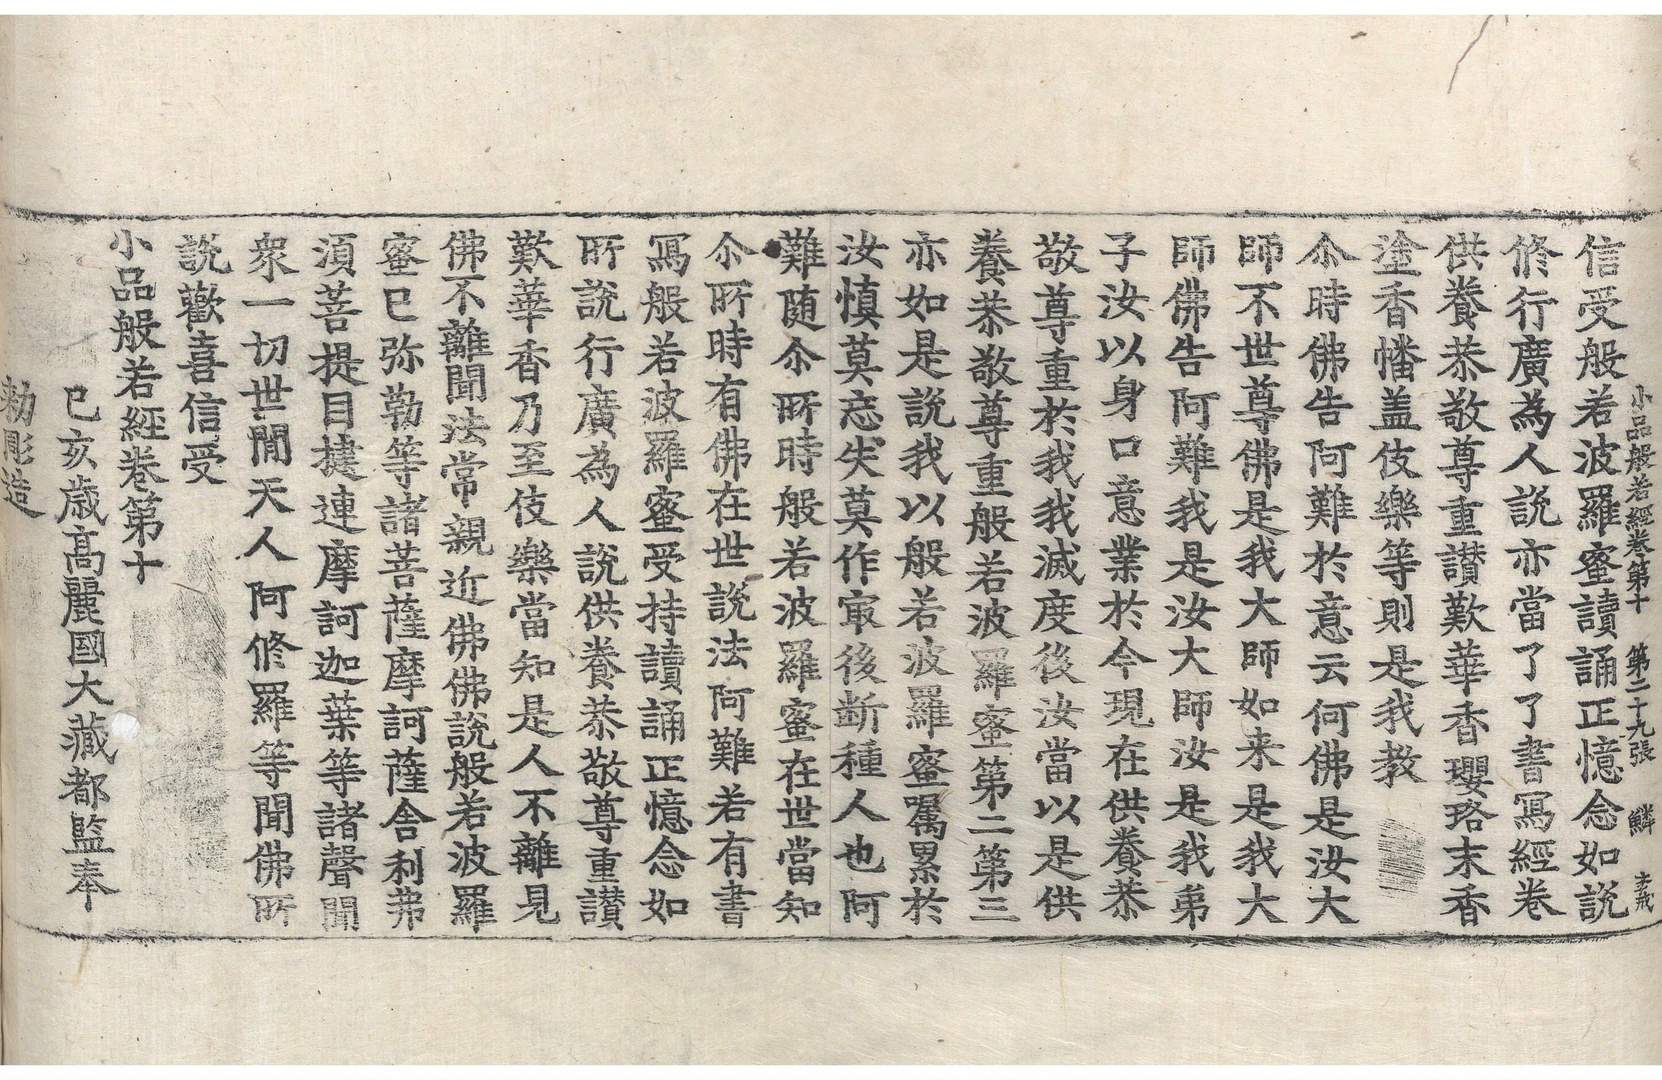 小品般若經卷第十　第二十九張　鱗　孝戒
信受般若波羅蜜讀誦正憶念如說
修行廣為人說亦當了了書寫經卷
供養恭敬尊重讃歎華香瓔珞末香
塗香幡盖伎樂等則是我教
尒時佛告阿難於意云何佛是汝大
師不世尊佛是我大師如来是我大
師佛告阿難我是汝大師汝是我弟
子汝以身口意業於今現在供養恭
敬尊重於我我滅度後汝當以是供
養恭敬尊重般若波羅蜜第二第三
亦如是說我以般若波羅蜜嘱累於
汝慎莫忘失莫作㝡後断種人也阿
難随尒所時般若波羅蜜在世當知
尒所時有佛在世說法阿難若有書
寫般若波羅蜜受持讀誦正憶念如
所說行廣為人說供養恭敬尊重讃
歎華香乃至伎樂當知是人不離見
佛不離聞法常親近佛佛說般若波羅
蜜已弥勒等諸菩薩摩訶薩舎利弗
須菩提目揵連摩訶迦葉等諸聲聞
衆一切世閒天人阿修羅等聞佛所
說歡喜信受
小品般若經卷第十
己亥歳高麗國大藏都監奉
勅彫造